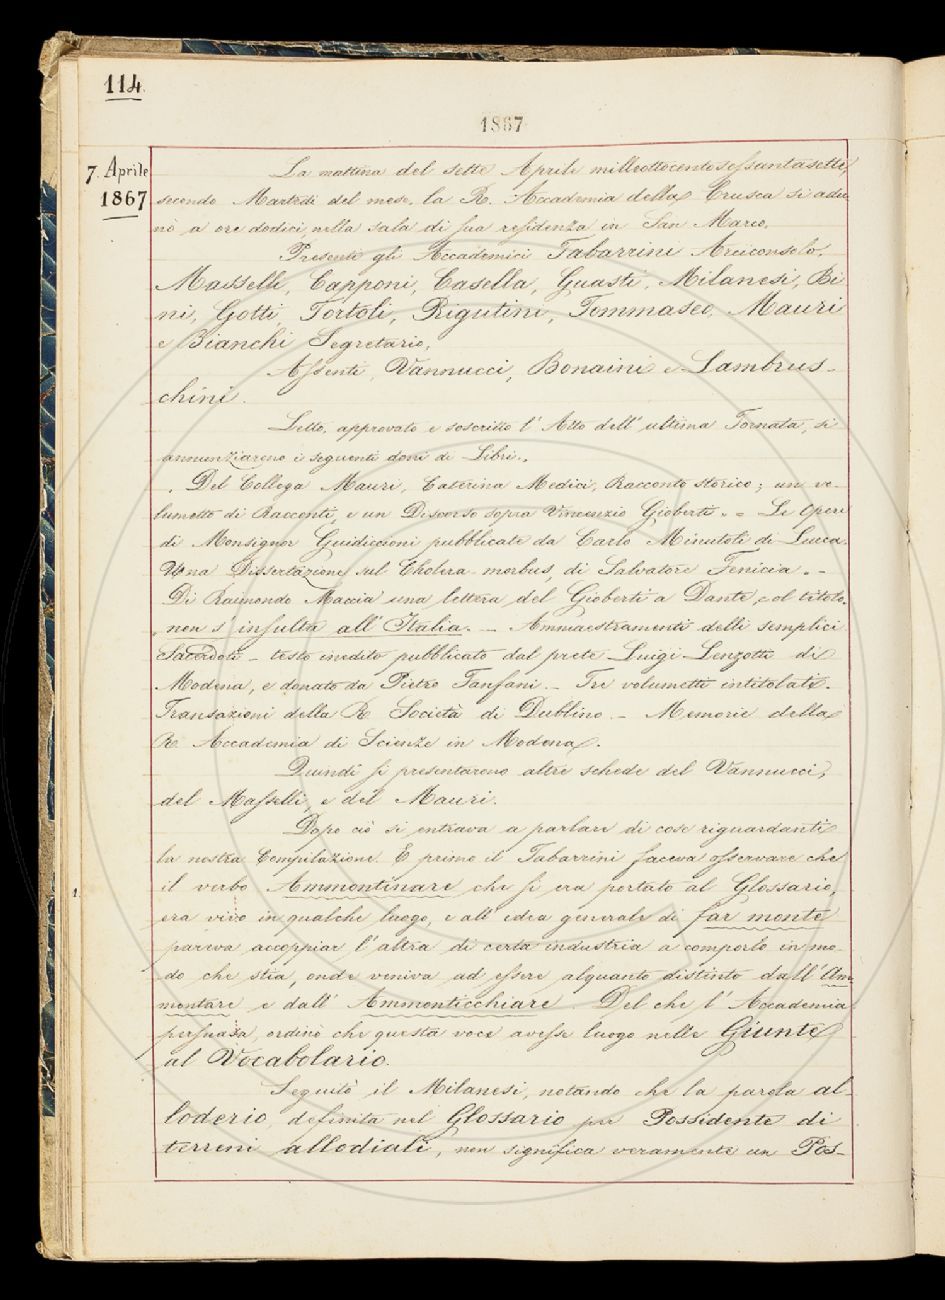 114.
1867
7. Aprile
1867
La mattina del sette Aprile milleottocentosessantasette,
secondo Martedì del mese, la R. Accademia della Crusca si adu
nò a ore dodici nella sala di sua residenza in San Marco.
Presenti gli Accademici Tabarrini Arciconsolo,
Masselli, Capponi, Casella, Guasti, Milanesi, Bi
ni, Gotti, Tortoli, Rigutini, Tommaseo, Mauri
e Bianchi Segretario.
Assenti, Vannucci, Bonaini e Lambrus-
chini.
Letto, approvato e soscritto l'Atto dell'ultima Tornata, si
annunziarono i seguenti doni di Libri.
Del Collega Mauri, Caterina Medici, Racconto storico; un vo-
lumetto di Racconti, e un Discorso sopra Vincenzio Gioberti. = Le Opere
di Monsignor Guidiccioni pubblicate da Carlo Minutoli di Lucca.
Una Dissertazione sul Cholera-morbus, di Salvatore Fenicia. -
Di Raimondo Maccia una lettera del Gioberti a Dante, col titolo.
non s'insulta all'Italia. - Ammaestramenti delli semplici
Sacerdoti - testo inedito pubblicato dal prete Luigi Lenzotti di
Modena, e donato da Pietro Fanfani. - Tre volumetti intitolati.
Transazioni della R. Società di Dublino. - Memorie della
R. Accademia di Scienze in Modena.
Quindi si presentarono altre schede del Vannucci,
del Masselli, e del Mauri.
Dopo ciò si entrava a parlare di cose riguardanti
la nostra Compilazione. E primo il Tabarrini faceva osservare che
1. il verbo Ammontinare che si era portato al Glossario,
era vivo in qualche luogo, e all'idea generale di far monte
pareva accoppiar l'altra di certa industria a comporlo in mo-
do che stia, onde veniva ad essere alquanto distinto dall'Am-
montare e dall'Ammonticchiare. Del che l'Accademia
persuasa, ordinò che questa voce avesse luogo nelle Giunte
al Vocabolario.
Seguitò il Milanesi, notando che la parola al-
loderio, definita nel Glossario per Possidente di
terreni allodiali, non significa veramente un Pos-